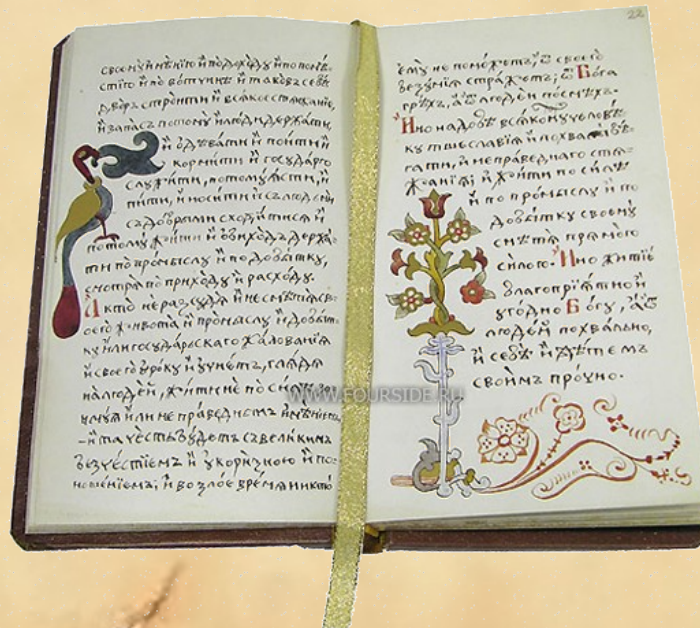 своему имѣнїю и по доходу и по помѣ-
стїю и по вотчинѣ и таковъ себѣ
дворъ строити и всякое стяжанїе,
и запасъ потому и люди держати,
и одѣвати и поити и
кормити и государю
служити, потому ясти, и
пити, и носити и съ людьми
съ добрыми сходитися и
потому жити и обиходъ держа-
ти по промыслу и по добытку,
смотря по приходу и расходу.
А кто не разсудя и не смѣтя св-
оего живота и промыслу и добыт-
ку или государьскаго жалованїя
и своего уроку и учнетъ, глядя
на людей, жити не по силѣ,
или не праведнымъ имѣнїемъ
– и та честь будетъ съ великимъ
безчестїемъ и укоризною и по-
ношенїемъ; и во злое время никто
22
ему не поможетъ; ѿ своего
безумїя стражетъ; ѿ Бога
грѣхъ, а ѿ людей посмѣхъ.
Ино надобѣ всякому человѣ-
ку тщеславїя и похвалы бѣ-
гати, и неправеднаго стя-
жанїя; и жити по силѣ
и по промыслу и по
добытку своему
смѣтя прямого
силою. Ино житїе
благопрїятно и
угодно Богу, а ѿ
людей похвально,
и себѣ и дѣтемъ
своимъ прочно.
WWW.FOURSIDE.RU